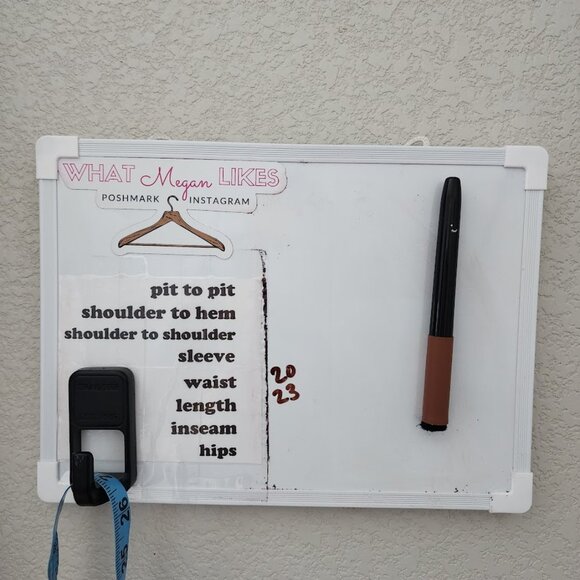 WHAT Megan LIKES
POSHMARK INSTAGRAM
pit to pit
shoulder to hem
shoulder to shoulder
sleeve
waist 20
length 23
inseam
hips
26